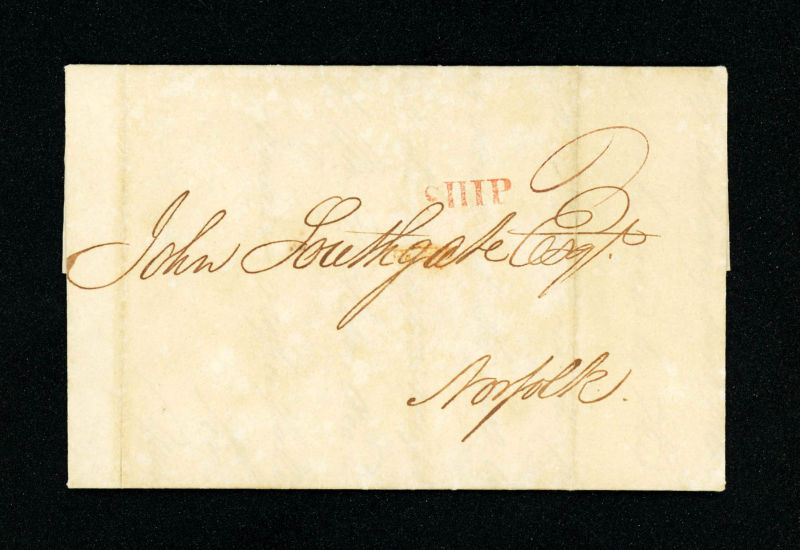 SHIP
John Southgate Esqr.
Norfolk.